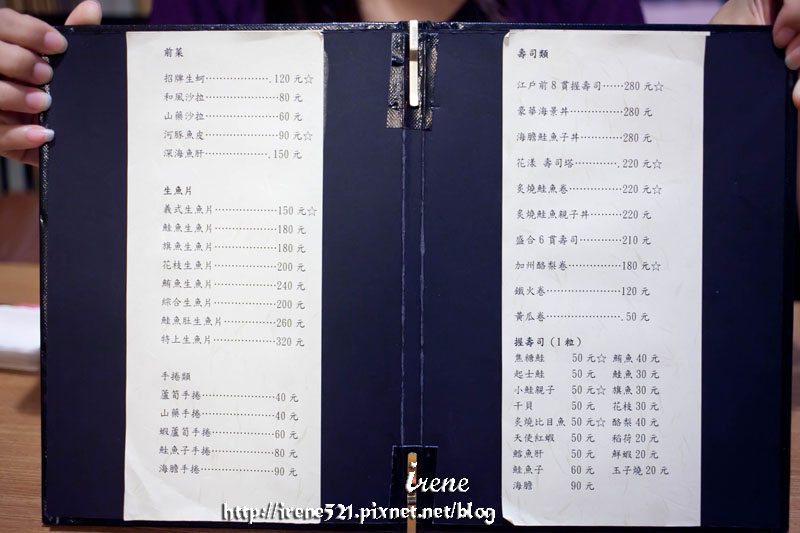 前菜
招牌生蚵··················120 元☆
和風沙拉··················80 元
山藥沙拉··················60 元
河豚魚皮··················90 元☆
深海魚肝··················150 元
生魚片
義式生魚片··················150 元☆
鮭魚生魚片··················180 元
旗魚生魚片··················180 元
花枝生魚片··················200 元
鮪魚生魚片··················240 元
綜合生魚片··················200 元
鮭魚肚生魚片··················260 元
特上生魚片··················320 元
手捲類
蘆筍手捲··················40 元
山藥手捲··················40 元
蝦蘆筍手捲··················60 元
鮭魚子手捲··················80 元
海膽手捲··················90 元
壽司類
江戶前 8 貫握壽司······280 元☆
豪華海景丼··············280 元
海膽鮭魚子丼············280 元
花漾 壽司塔············220 元☆
炙燒鮭魚卷··············220 元☆
炙燒鮭魚親子丼··········220 元
盛合 6 貫壽司············210 元
加州酪梨卷··············180 元☆
鐵火卷··················120 元
黃瓜卷··················50 元
握壽司 (1 粒)
焦糖鮭 50 元☆ 鮪魚 40 元
起士鮭 50 元 鮭魚 30 元
小鮭親子 50 元☆ 旗魚 30 元
干貝 50 元 花枝 30 元
炙燒比目魚 50 元☆ 酪梨 40 元
天使紅蝦 50 元 稻荷 20 元
鱈魚肝 50 元 鮮蝦 20 元
鮭魚子 60 元 玉子燒 20 元
海膽 90 元
irene
http://irene321.pixnet.net/blog